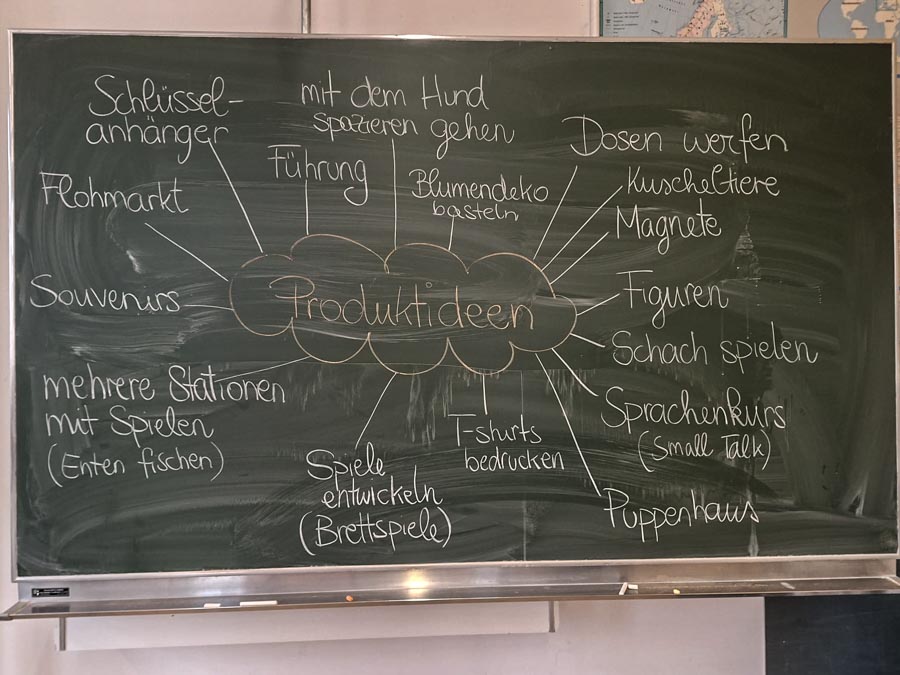 Schlüssel-
anhänger
mit dem Hund
spazieren gehen
Führung
Blumendeko
basteln
Dosen werfen
Kuscheltiere
Magnete
Flohmarkt
Souvenirs
Produktideen
Figuren
Schach spielen
Sprachenkurs
(Small Talk)
Puppenhaus
T-shirts
bedrucken
Spiele
entwickeln
(Brettspiele)
mehrere Stationen
mit Spielen
(Enten fischen)